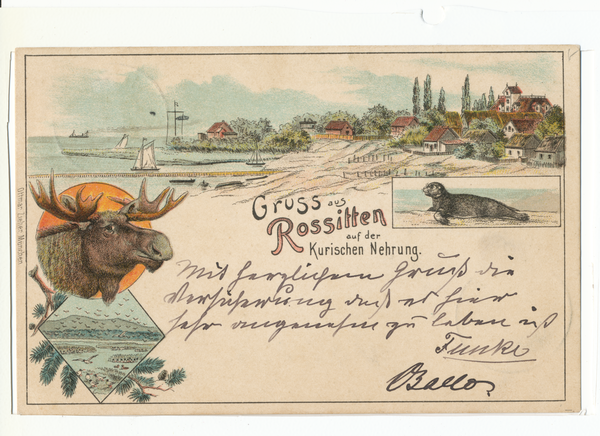 Gruss aus
Rossitten
auf der
Kurischen Nehrung.
Mit herzlichem Gruß die
Versicherung daß es hier
sehr angenehm zu leben ist
Funke